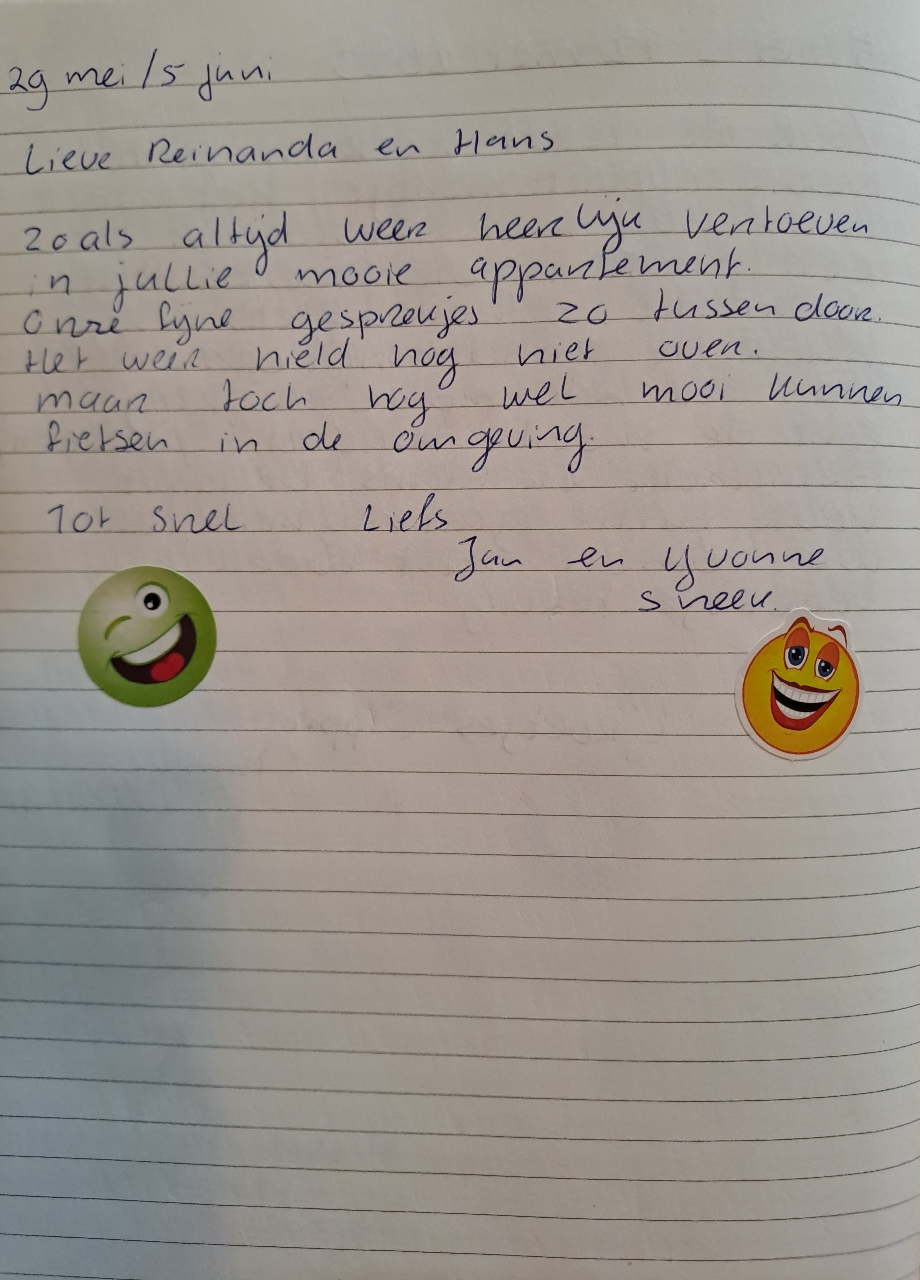 29 mei / 5 juni
Lieve Reinanda en Hans
Zoals altijd weer heerlijk vertoeven
in jullie mooie appartement.
Onze fijne gesprekjes zo tussendoor.
Het weer hield nog niet over.
maar toch nog wel mooi kunnen
fietsen in de omgeving.
Tot snel Liefs
Jan en Yvonne
Sneek.